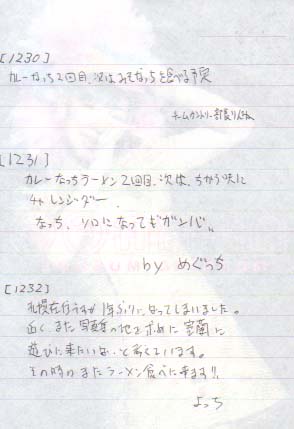 [1230]
カレーなっち2回目、次はみそなっちを食べる予定
チームカントリー
[1231]
カレーなっちラーメン2回目、次は、ちがう味に
チャレンジダー、
なっち、ソロになってもガンバ
by めぐっち
[1232]
札幌在住ですが1年ぶりになってしまいました。
近く、また写真の地を求めに室蘭に
遊びに来たいな、と考えています。
その時、またラーメン食べに来ます!!
よっち